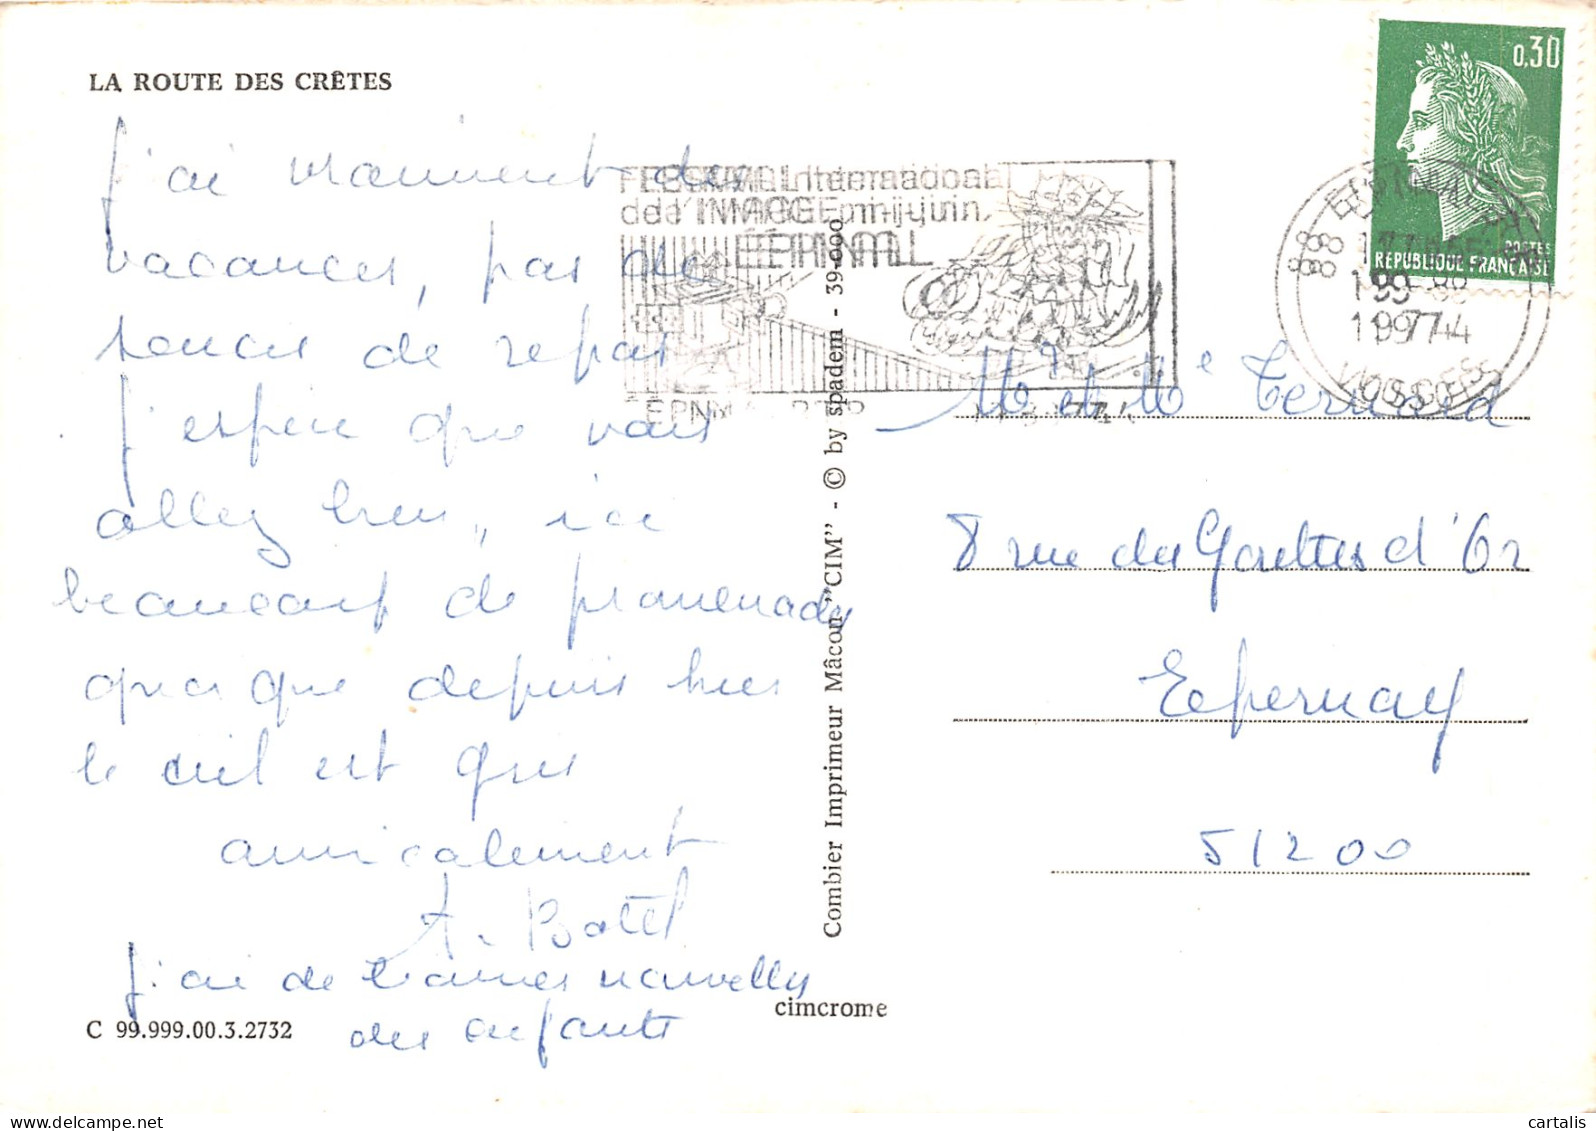 LA ROUTE DES CRÊTES
J'ai vraiment des
vacances, pas de
soucis de repas
J'espère que vous
allez bien, ici
beaucoup de promenades
quoique depuis hier
le ciel est gris
amicalement
A. Botel
J'ai de bonnes nouvelles
des enfants
C 99.999.00.3.2732
cimcrome
Combier Imprimeur Mâcon "CIM" - © by spadem - 39-000
FESTIVAL International
de l'IMAGE mi-juin
ÉPINAL
0,30
POSTES
RÉPUBLIQUE FRANÇAISE
88 EPINAL
1974
VOSGES
Mr et Me Ternard
8 rue des Gouttes d'Or
Epernay
51200
cartalis | delcampe.net